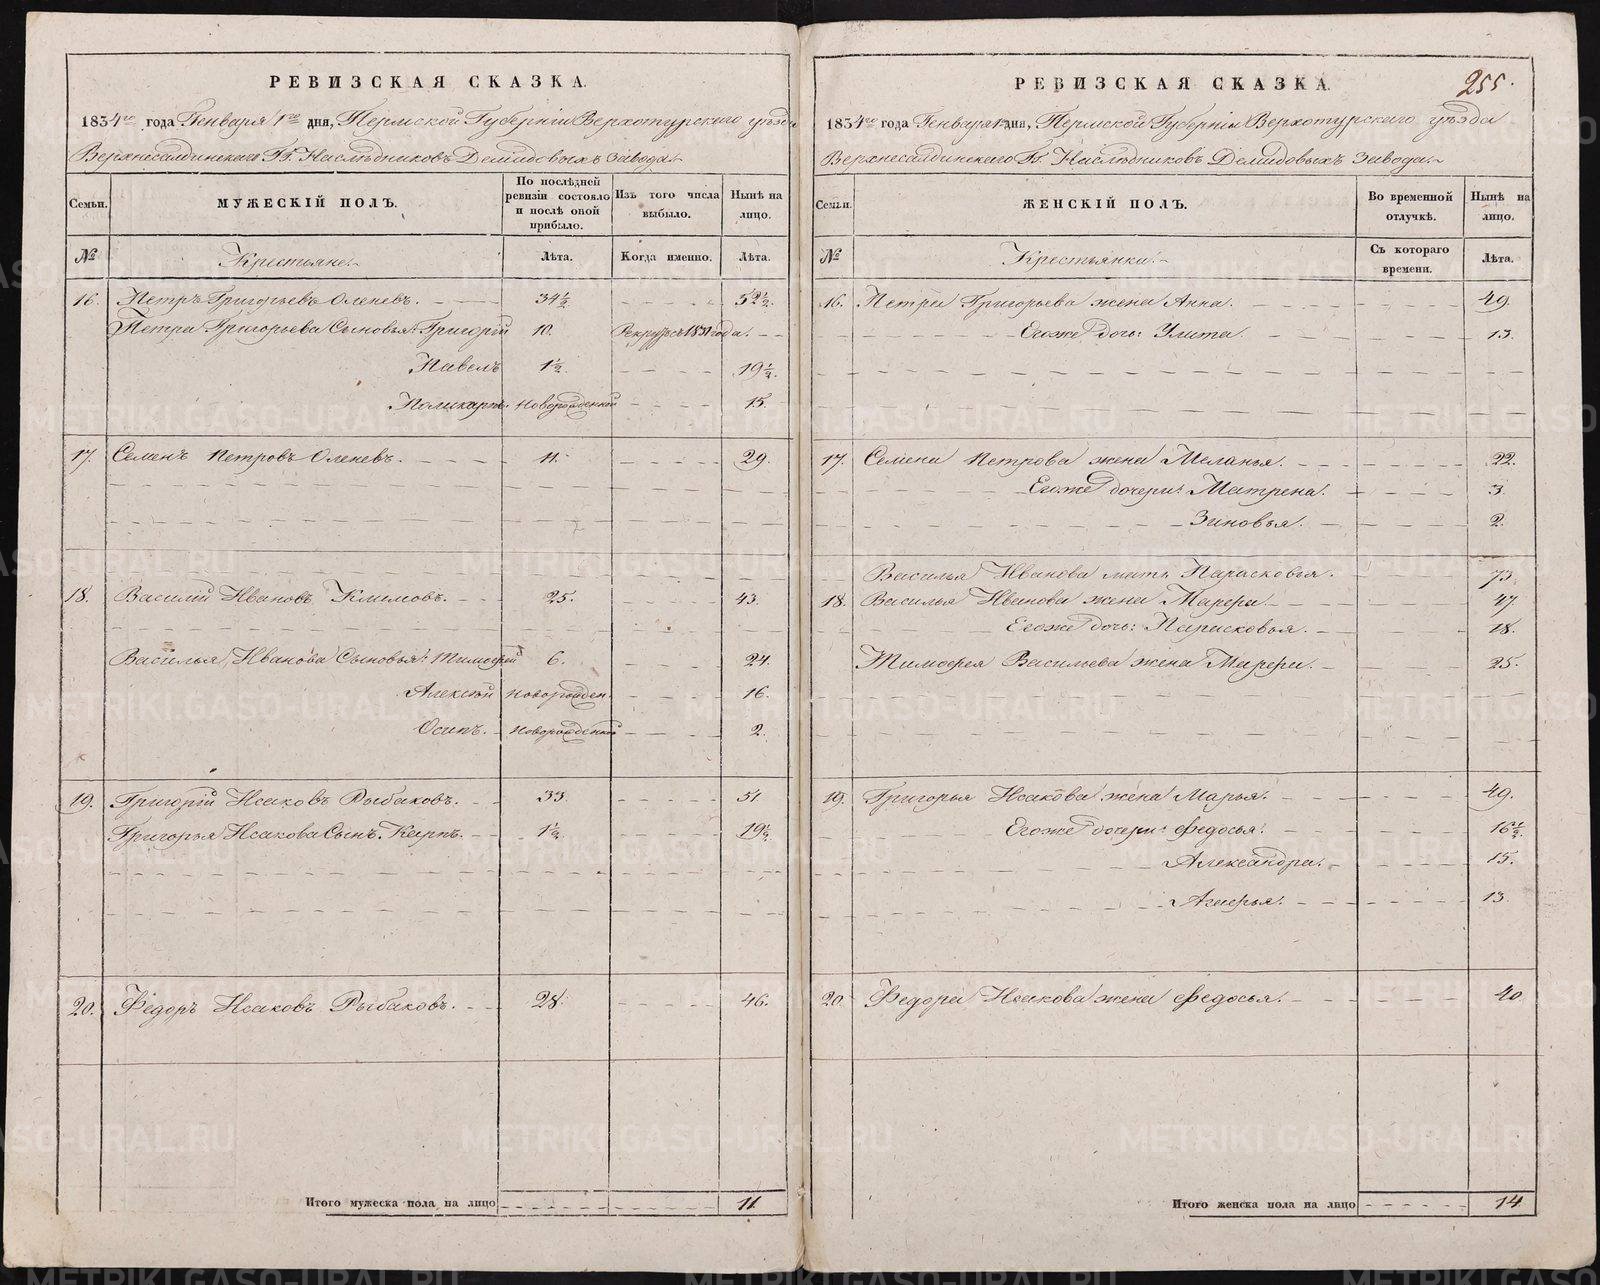 РЕВИЗСКАЯ СКАЗКА.
1834го года Генваря 1го дня, Пермской Губернiи Верхотурскаго уѣзда
Верхнесалдинскаго Гг. Наслѣдниковъ Демидовыхъ завода
Семьи. МУЖЕСКIЙ ПОЛЪ. По послѣдней ревизiи состояло и послѣ оной прибыло. Изъ того числа выбыло. Нынѣ на лицо.
№ Крестьяне. Лѣта. Когда именно. Лѣта.
16. Петръ Григорьевъ Оленевъ. 34½ 52½.
Петра Григорьева Сыновья: Григорiй 10. Рекрутъ съ 1831 года.
Павелъ 1½. 19½.
Поликарпъ. Новорожденной 15.
17. Семенъ Петровъ Оленевъ. 11. 29.
18. Василiй Ивановъ Климовъ. 25. 43.
Василья Иванова Сыновья: Тимофей 6. 24.
Алексѣй новорожден. 16.
Осипъ. новорожденной 2.
19. Григорiй Исаковъ Рыбаковъ. 33. 51.
Григорья Исакова Сынъ. Карпъ. 1½. 19½.
20. Федоръ Исаковъ Рыбаковъ. 28. 46.
Итого мужеска пола на лицо 11.
255.
РЕВИЗСКАЯ СКАЗКА.
1834го года Генваря 1 дня, Пермской Губернiи Верхотурскаго уѣзда
Верхнесалдинскаго Гг. Наслѣдниковъ Демидовыхъ завода.
Семьи. ЖЕНСКIЙ ПОЛЪ. Во временной отлучкѣ. Нынѣ на лицо.
№ Крестьянки. Съ котораго времени. Лѣта.
16. Петра Григорьева жена Анна. 49.
Егоже дочь: Улита. 13.
17. Семена Петрова жена Меланья. 22.
Егоже дочери: Матрена. 3.
Зиновья. 2.
Василья Иванова мать Парасковья. 73.
18. Василья Иванова жена Марфа. 47.
Егоже дочь: Парасковья. 18.
Тимофея Васильева жена Марфа. 25.
19. Григорья Исакова жена Марья. 49.
Егоже дочери: Федосья. 16½.
Александра. 15.
Агафья. 13.
20. Федора Исакова жена Федосья. 40.
Итого женска пола на лицо 14.
METRIKI.GASO-URAL.RU